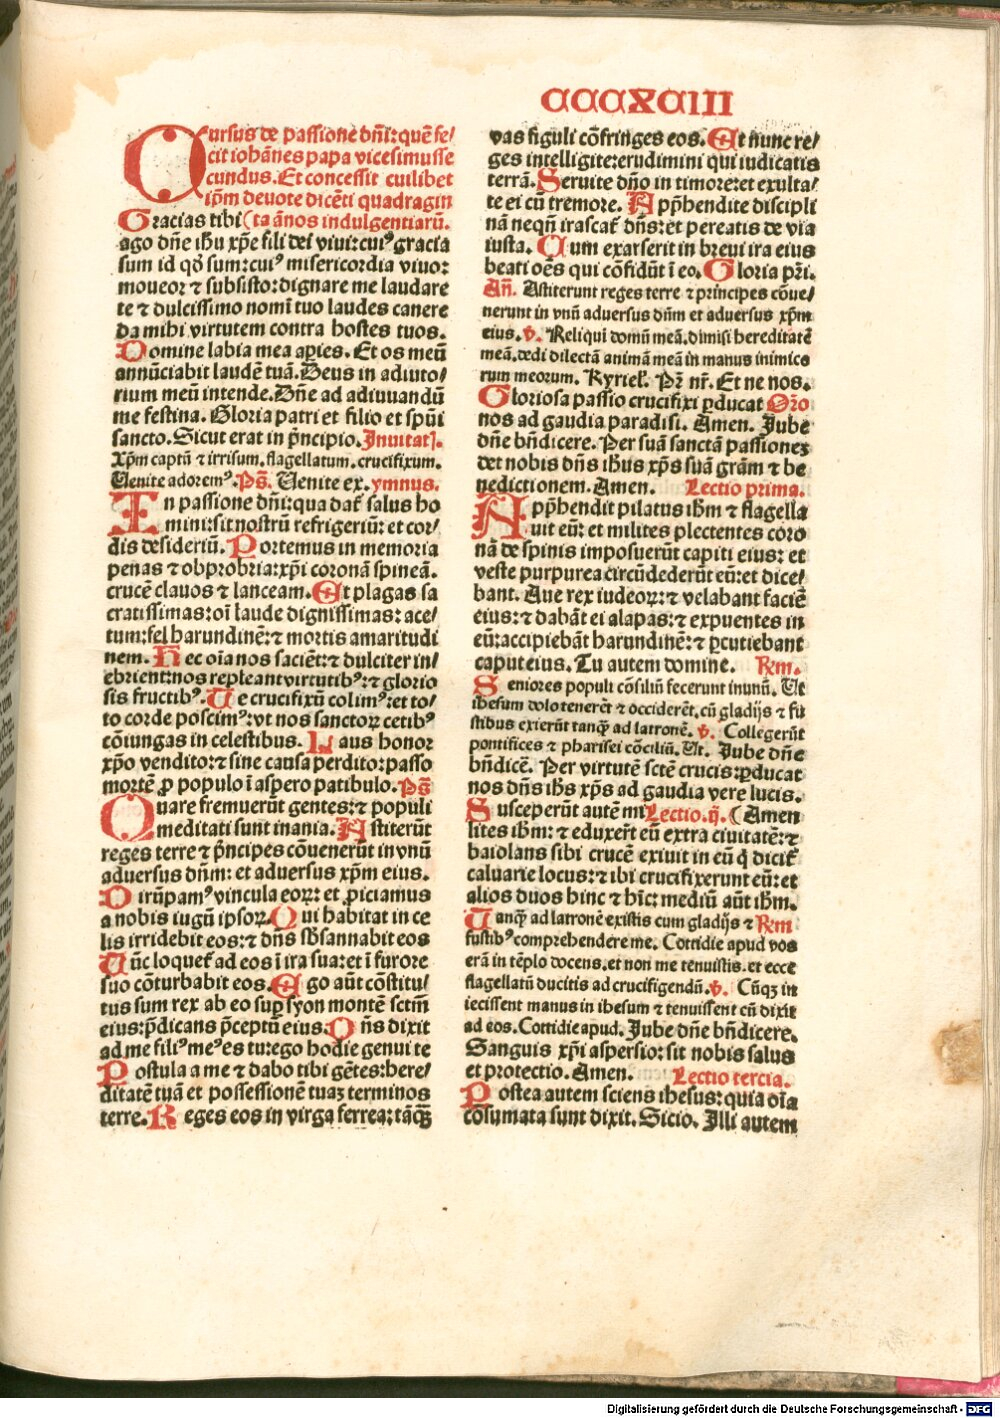 CCCXCIII
Cursus de passione dñi: quē fe/
cit iohānes papa vicesimusse
cundus. Et concessit cuilibet
ip̄m deuote dicēti quadragin
Gracias tibi (ta ānos indulgentiarū.
ago dñe ihu xp̄e fili dei viui: cuiꝰ gracia
sum id qd̛ sum: cuiꝰ misericordia viuo:
moueor ⁊ subsisto: dignare me laudare
te ⁊ dulcissimo nomī tuo laudes canere
da mihi virtutem contra hostes tuos.
Domine labia mea apies. Et os meū
annūciabit laudē tuā. Deus in adiuto/
rium meū intende. Dñe ad adiuuandū
me festina. Gloria patri et filio et spūi
sancto. Sicut erat in p̄ncipio. Inuitatꝭ.
Xp̄m captū ⁊ irrisum. flagellatum. crucifixum.
Uenite adoremꝰ. Ps̄. Uenite ex. ymnus.
In passione dñi: qua dat̄ salus ho
mini: sit nostrū refrigeriū: et cor/
dis desideriū. Portemus in memoria
penas ⁊ obprobria: xp̄i coronā spineā.
crucē clauos ⁊ lanceam. Et plagas sa
cratissimas: oī laude dignissimas: ace/
tum: fel harundinē: ⁊ mortis amaritudi
nem. Hec oīa nos sacient: ⁊ dulciter in/
ebrient: nos repleant virtutibꝰ: ⁊ glorio
sis fructibꝰ. Te crucifixū colimꝰ: et to/
to corde poscimꝰ: vt nos sanctoꝝ cetibꝰ
cōiungas in celestibus. Laus honor
xp̄o vendito: ⁊ sine causa perdito: passo
mortē ꝓ populo ī aspero patibulo. Ps̄
Quare fremuerūt gentes: ⁊ populi
meditati sunt inania. Astiterūt
reges terre ⁊ p̄ncipes cōuenerūt in vnū
aduersus dñm: et aduersus xp̄m eius.
Dirūpamꝰ vincula eoꝝ: et ꝓiciamus
a nobis iugū ipsoꝝ. Qui habitat in ce
lis irridebit eos: ⁊ dñs sb̄sannabit eos
Tūc loquet̄ ad eos ī ira sua: et ī furore
suo cōturbabit eos. Ego aūt cōstitu/
tus sum rex ab eo sup syon montē sctm̄
eius: p̄dicans p̄ceptū eius. Dñs dixit
ad me filiꝰ meꝰ es tu: ego hodie genui te
Postula a me ⁊ dabo tibi gētes: here/
ditatē tuā et possessionē tuaꝫ terminos
terre. Reges eos in virga ferrea: tāqꝫ
vas figuli cōfringes eos. Et nunc re/
ges intelligite: erudimini qui iudicatis
terrā. Seruite dño in timore: et exulta/
te ei cū tremore. Apphendite discipli
nā neqñ irascat̄ dñs: et pereatis de via
iusta. Cum exarserit in breui ira eius
beati oēs qui cōfidūt ī eo. Gloria pr̄i.
Añ. Astiterunt reges terre ⁊ principes cōue/
nerunt in vnū aduersus dñm et aduersus xp̄m
eius. v̄. Reliqui domū meā. dimisi hereditatē
meā. dedi dilectā animā meā in manus inimico
rum meorum. Kyriel̄. Pr̄ nr̄. Et ne nos.
Gloriosa passio crucifixi ꝑducat Or̄o
nos ad gaudia paradisi. Amen. Jube
dñe bn̄dicere. Per suā sanctā passioneꝫ
det nobis dñs ihus xp̄s suā grām ⁊ be
nedictionem. Amen. Lectio prima.
Apphendit pilatus ihm̄ ⁊ flagella
uit eū: et milites plectentes coro
nā de spinis imposuerūt capiti eius: et
veste purpurea circūdederūt eū: et dice/
bant. Aue rex iudeoꝝ: ⁊ velabant faciē
eius: ⁊ dabāt ei alapas: ⁊ expuentes in
eū: accipiebāt harundinē: ⁊ ꝑcutiebant
caput eius. Tu autem domine. Rm.
Seniores populi cōsiliū fecerunt in unū. Ut
ihesum dolo tenerēt ⁊ occiderēt. cū gladijs ⁊ fu
stibus exierūt tanqꝫ ad latronē. v̄. Collegerūt
pontifices ⁊ pharisei cōciliū. Ut. Jube dñe
bn̄dicē. Per virtutē sctē crucis: ꝑducat
nos dñs ihs xp̄s ad gaudia vere lucis.
Susceperūt autē mi Lectio. ij. (Amen
lites ihm̄: ⁊ eduxer̄t eū extra ciuitatē: ⁊
baiolans sibi crucē exiuit in eū q̄ dicit̄
caluarie locus: ⁊ ibi crucifixerunt eū: et
alios duos hinc ⁊ hīc: mediū aūt ihm̄.
Tanqꝫ ad latronē existis cum gladijs ⁊ Rm
fustibꝰ comprehendere me. Cottidie apud vos
erā in tēplo docens. et non me tenuistis. et ecce
flagellatū ducitis ad crucifigendū. v̄. Cūqꝫ in
iecissent manus in ihesum ⁊ tenuissent cū dixit
ad eos. Cottidie apud. Jube dñe bn̄dicere.
Sanguis xp̄i aspersio: sit nobis salus
et protectio. Amen. Lectio tercia.
Postea autem sciens ihesus: quia oīa
cōsumata sunt dixit. Sicio. Illi autem
Digitalisierung gefördert durch die Deutsche Forschungsgemeinschaft - DFG